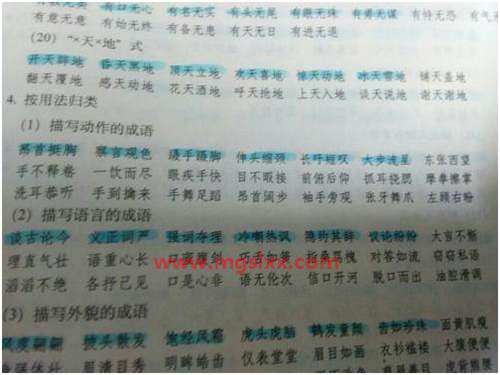 有口无心 有名无实 有头无尾 有眼无珠 有勇无谋 有恃无恐
有意无意 有始无终 有备无患 有天无日 有进无退
(20) “×天×地” 式
开天辟地 昏天黑地 顶天立地 欢天喜地 惊天动地 冰天雪地 铺天盖地
翻天覆地 感天动地 花天酒地 呼天抢地 上天入地 谈天说地 谢天谢地
4. 按用法归类
(1) 描写动作的成语
昂首挺胸 察言观色 蹑手蹑脚 伸头缩颈 长吁短叹 大步流星 东张西望
手不释卷 一饮而尽 眼疾手快 目不暇接 前俯后仰 抓耳挠腮 摩拳擦掌
洗耳恭听 手到擒来 手舞足蹈 昂首阔步 袖手旁观 张牙舞爪 左顾右盼
(2) 描写语言的成语
谈古论今 义正词严 强词夺理 冷嘲热讽 隐约其辞 议论纷纷 大言不惭
理直气壮 语重心长 对答如流 窃窃私语
滔滔不绝 各抒己见 口是心非 语无伦次 信口开河 脱口而出 油腔滑调
www.mgslxx.com
(3) 描写外貌的成语
风度翩翩 披头散发 饱经风霜 虎头虎脑 鹤发童颜 面黄肌瘦
眉清目秀 明眸皓齿 仪表堂堂 眉目如画 衣衫褴褛 大腹便便